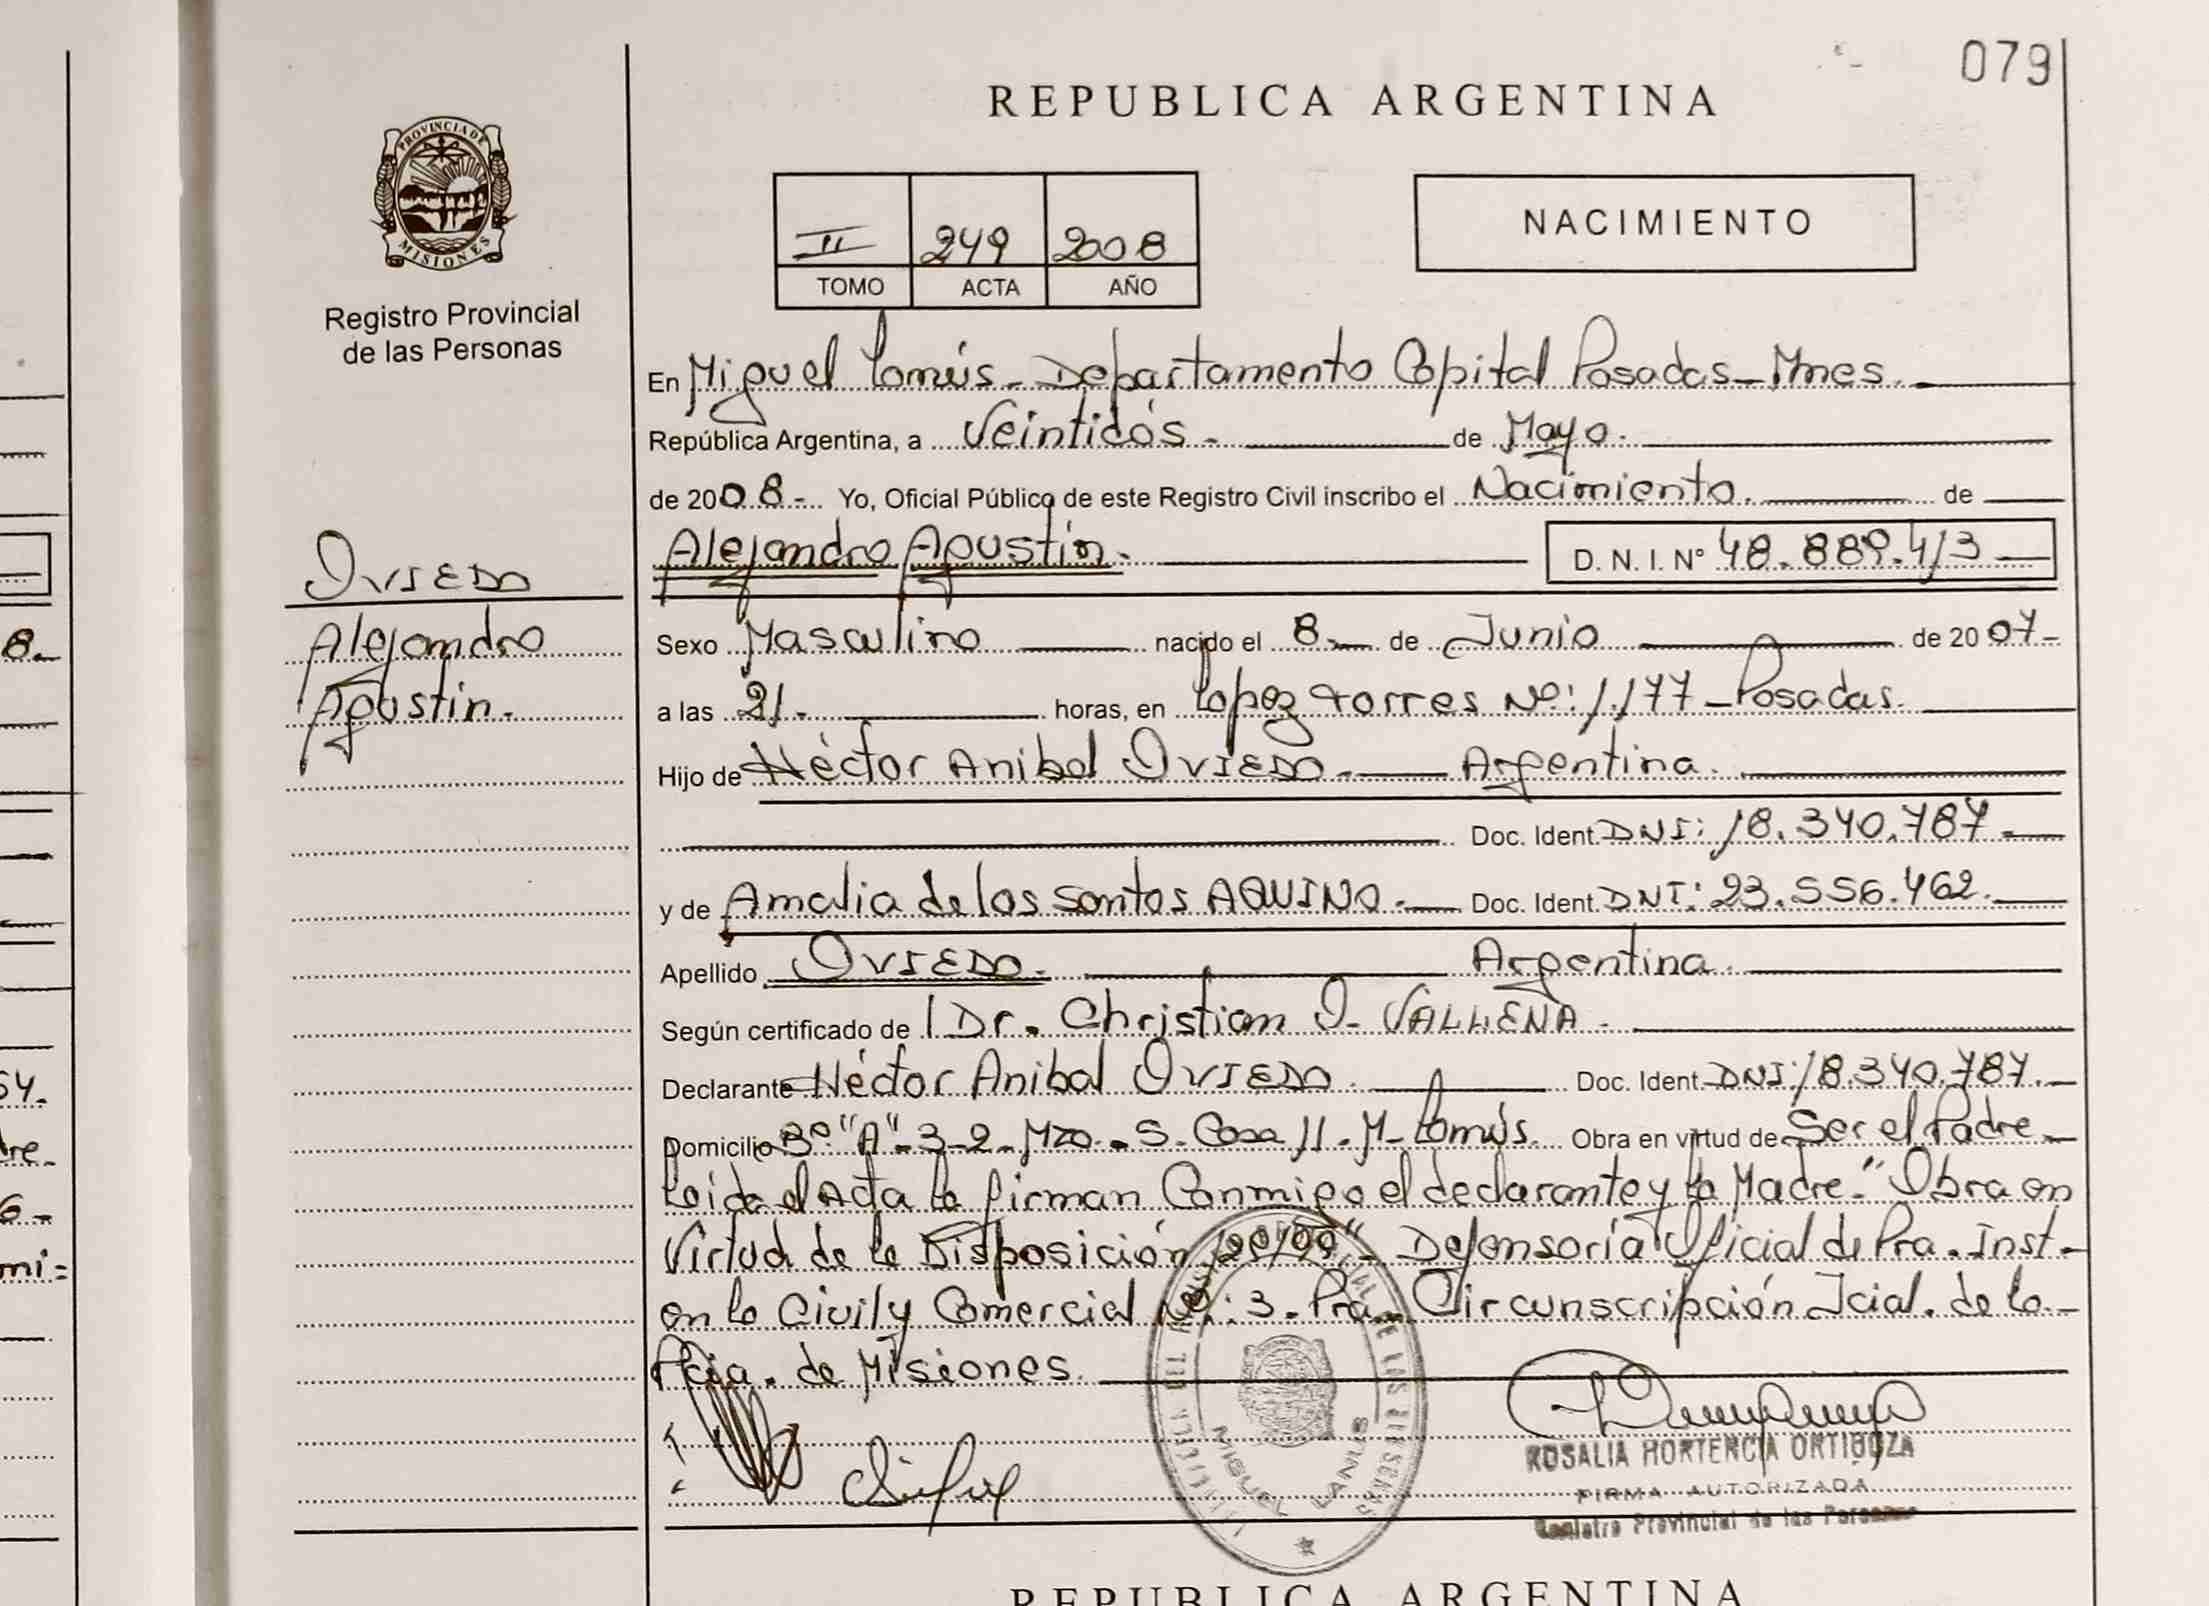 079
REPUBLICA ARGENTINA
PROVINCIA DE
MISIONES
Registro Provincial
de las Personas
II 249 2008
TOMO ACTA AÑO
NACIMIENTO
En Miguel Lanús - Departamento Capital Posadas - Mnes.
República Argentina, a Veintidós - de Mayo.
de 2008.- Yo, Oficial Público de este Registro Civil inscribo el Nacimiento. de
Alejandro Agustín.- D. N. I. Nº 48.889.413
OVIEDO
Alejandro
Agustín.-
Sexo Masculino nacido el 8 de Junio de 2007-
a las 21.- horas, en Lopez Torres Nº: 1.177 - Posadas.
Hijo de Héctor Anibal OVIEDO.- Argentina.
Doc. Ident. DNI: 18.340.787.-
y de Amalia de los Santos AQUINO.- Doc. Ident. DNI: 23.556.462.
Apellido OVIEDO.- Argentina.
Según certificado de Dr. Christian
Declarante Héctor Anibal OVIEDO. Doc. Ident. DNI: 18.340.787.-
Domicilio Bº "A"- 3-2- Mzo.- S. Casa 11. M- Lanús. Obra en virtud de Ser el Padre-
Leida el Acta la firman Conmigo el declarante y la Madre.- "Obra en
Virtud de la Disposición "- Defensoría Oficial de Pra. Inst-
en lo Civil y Comercial Nº: 3. Pra. Circunscripción Jcial. de la-
Pcia. de Misiones.
MIGUEL LANUS
ROSALIA HORTENCIA ORTIGOZA
FIRMA AUTORIZADA
Registro Provincial de las Personas
REPUBLICA ARGENTINA